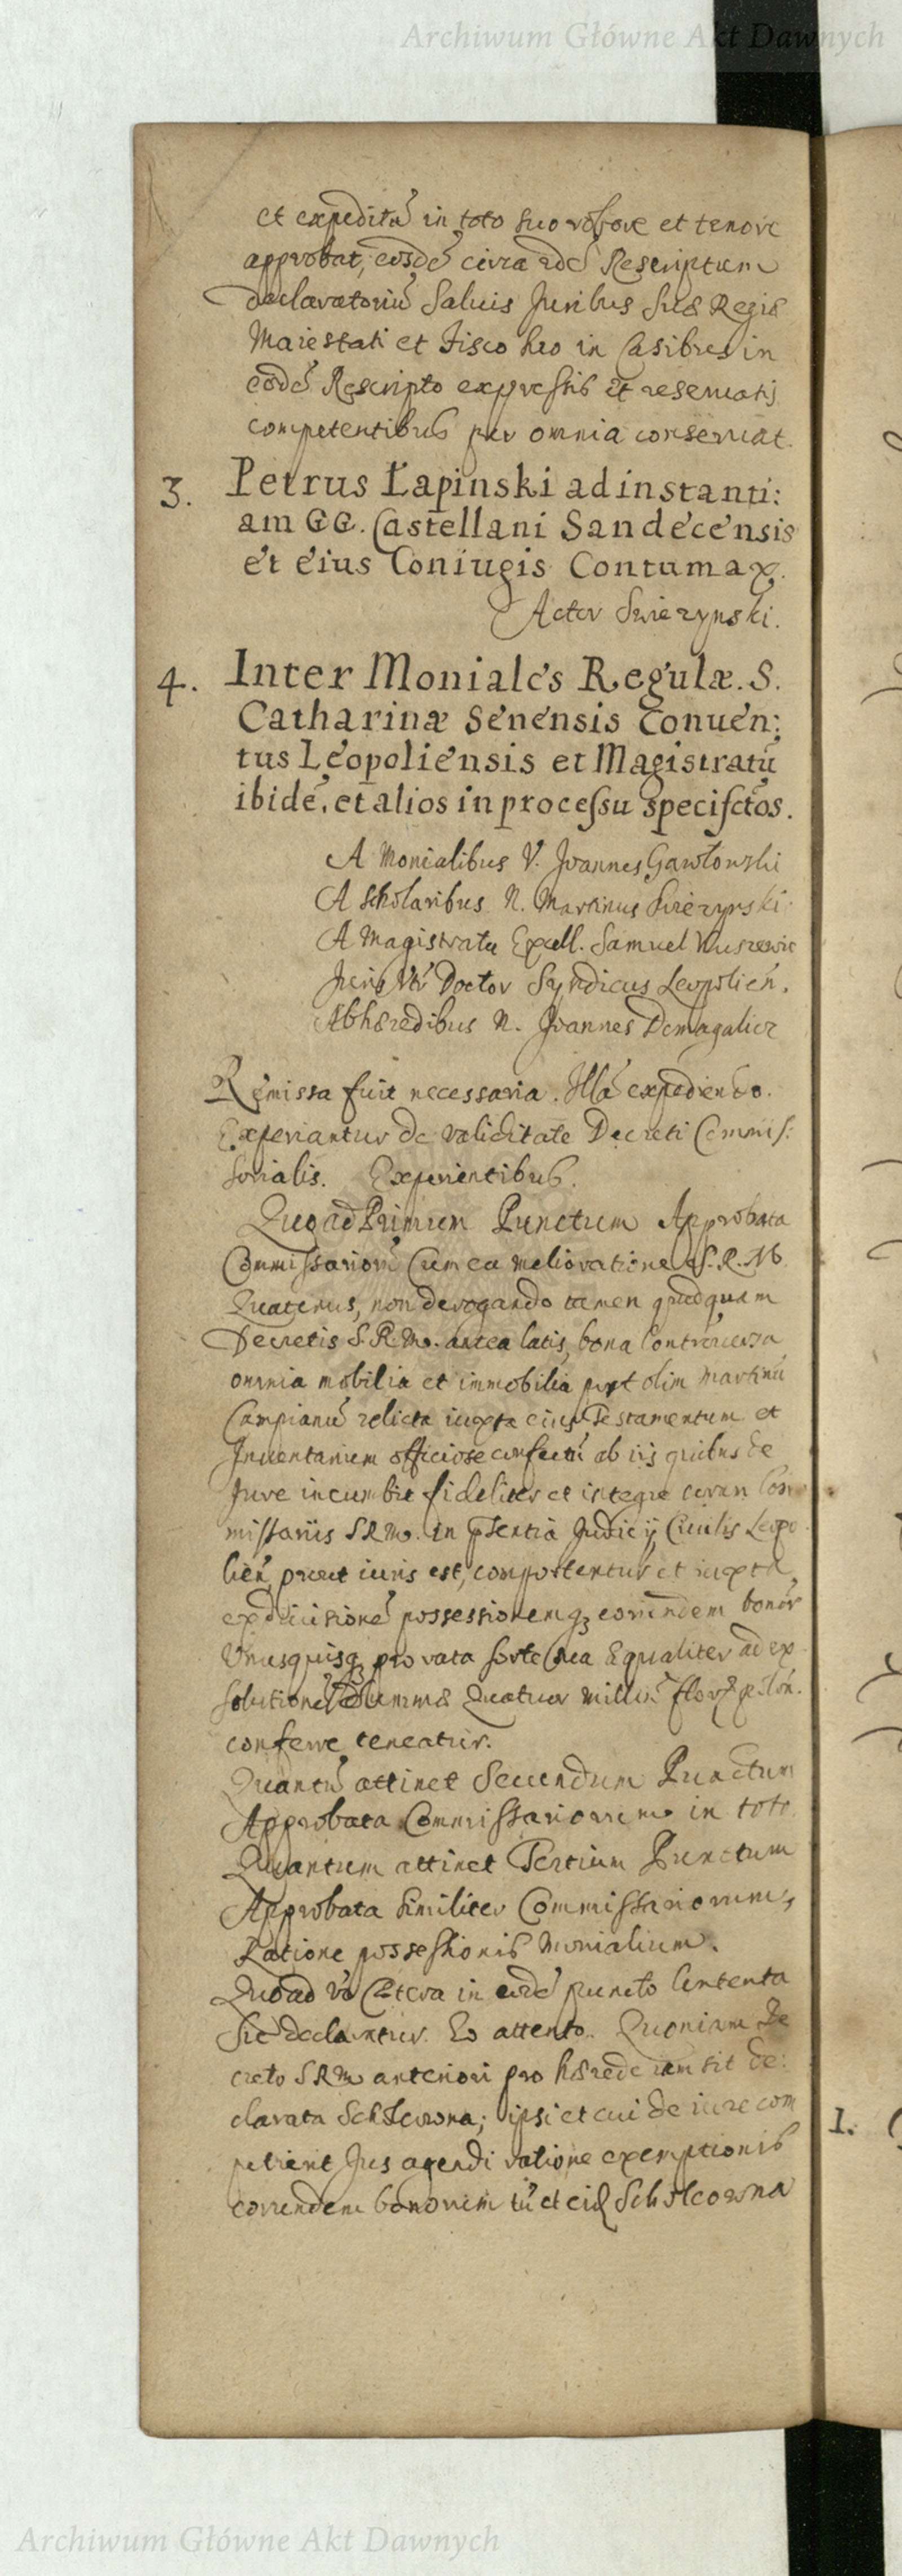 Archiwum Główne Akt Dawnych
et expeditã in toto suo robore et tenore
approbat, eosdẽ circa idẽ Rescriptum
declaratoriũ Saluis Juribus Suæ Regiæ
Maiestati et Fisco suo in Casibus in
eodẽ Rescripto expressis et reseruatis
competentibus per omnia conseruat.
3. Petrus Łapinski ad instanti:
am GG. Castellani Sandecensis
et eius Coniugis Contumax.
Actor Swierzynski.
4. Inter Moniales Regulæ. S.
Catharinæ Senensis Conuen:
tus Leopoliensis et Magistratũ
ibidẽ, et alios in processu specifctos.
A Monialibus V. Joannes Gawłowski
A Scholaribus N. Martinus Swierzynski
A Magistratu Excell. Samuel Kuszewic
Doctor Syndicus Leopolien̄.
Ab hæredibus N. Joannes Domagalicz
Remissa fuit necessaria. Illã expediendo.
Experiantur de validitate Decreti Commis:
sorialis. Experientibus.
Quoad Primum Punctum Approbata
Commissariorũ Cum ea melioratione S. R. M.
Quatenus, non derogando tamen quidquam
Decretis S. R. M. antea latis, bona Controuersa
omnia mobilia et immobilia post olim Martinũ
Campianũ relicta iuxta eius Testamentum et
Inuentarium officiose confectũ ab iis quibus de
Jure incumbit fideliter et integre coram Com
missariis S R M. in pñtia Judicij Ciuilis Leopo
lien̄ prout iuris est, comportentur et iuxta
ex diuisionẽ possessionemq3 eorundem bonor̃
Vnusquisq3 pro rata sorte sua Equaliter ad ex
solutionẽ Summæ Quatuor milliũ flor̃ polon̄.
conferre teneatur.
Quantũ attinet Secundum Punctum
Approbata Commissariorum in toto
Quantum attinet Tertium Punctum
Approbata similiter Commissariorum,
Ratione possessionis Monialium.
Quoad vo Cætera in eodẽ puncto Contenta
Sic declarantur. Eo attento. Quoniam De
creto S R M anteriori pro hærede iam sit de:
clarata Scholcowna; ipsi et cui de iure com
petierit Jus agendi ratione exemptionis
eorundem bonorum tũ et Scholcowna
1.
Archiwum Główne Akt Dawnych